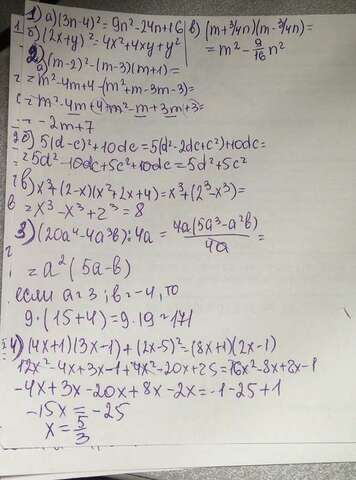 1) а) (3n-4)² = 9n² - 24n + 16 в) (m + ¾n)(m - ¾n) =
б) (2x+y)² = 4x² + 4xy + y² = m² - 9/16 n²
2)
а) (m-2)² - (m-3)(m+1) =
= m² - 4m + 4 - (m² + m - 3m - 3) =
= m² - 4m + 4 - m² - m + 3m + 3 =
= -2m + 7
б) 5(d-c)² + 10dc = 5(d² - 2dc + c²) + 10dc =
= 5d² - 10dc + 5c² + 10dc = 5d² + 5c²
в) x³ + (2-x)(x² + 2x + 4) = x³ + (2³ - x³) =
= x³ - x³ + 2³ = 8
3) (20a⁴ - 4a³b) : 4a = 4a(5a³ - a²b) / 4a =
= a² (5a - b)
если a = 3; b = -4, то
9 · (15 + 4) = 9 · 19 = 171
4) (4x+1)(3x-1) + (2x-5)² = (8x+1)(2x-1)
12x² - 4x + 3x - 1 + 4x² - 20x + 25 = 16x² - 8x + 2x - 1
-4x + 3x - 20x + 8x - 2x = -1 - 25 + 1
-15x = -25
x = 5/3